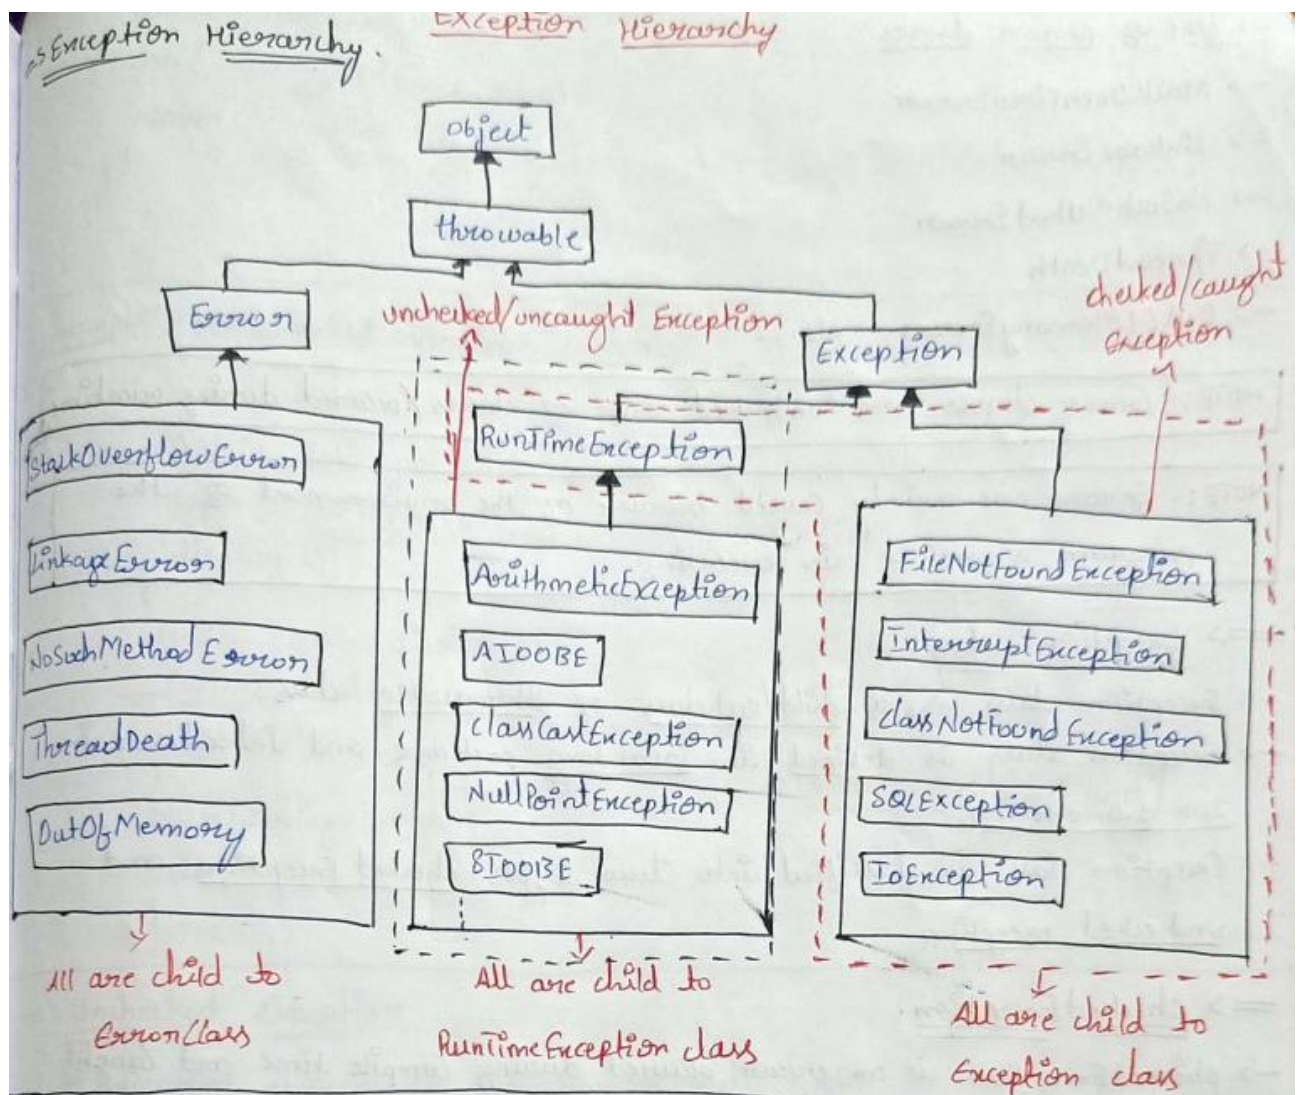 Exception Hierarchy.
Exception Hierarchy
Object
throwable
Error
unchecked/uncaught Exception
checked/caught
Exception
Exception
RunTimeException
StackOverflowError
LinkageError
NoSuchMethodError
ThreadDeath
OutOfMemory
ArithmeticException
AIOOBE
ClassCastException
NullPointException
SIOOBE
FileNotFoundException
InterruptException
ClassNotFoundException
SQLException
IoException
All are child to
ErrorClass
All are child to
RunTimeException class
All are child to
Exception class